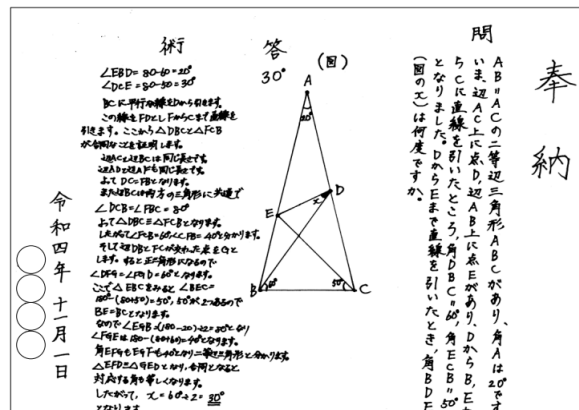 奉納
問
AB=ACの二等辺三角形ABCがあり、角Aは20°です
いま、辺AC上に点D、辺AB上に点Eがあり、DからB、Eか
らCに直線を引いたところ、角DBC=60°、角ECB=50°
となりました。DからEまで直線を引いたとき、角BDE
(図のx)は何度ですか。
(図)
A
20°
D
x
E
B
60°
50°
C
答
30°
術
∠EBD=80-60=20°
∠DCE=80-50=30°
BCに平行な線をDから引きます。
この線をFDとしFからCまで直線を
引きます。ここから△DBCと△FCB
が合同なことを証明します。
辺ACと辺BCは同じ長さです。
辺ADと辺AFも同じ長さです。
よってDC=FBとなります。
また辺BCは両方の三角形に共通で
∠DCB=∠FBC=80°
よって△DBC≡△FCBとなります。
したがって∠FCB=60°、∠FCB=40°と分かります。
そして辺DBとFCが交わった点をGと
します。すると正三角形になるので
∠DFG=∠FGD=60°となります。
ここで△EBCをみると∠BEC=
180°-(80+50)=50°、50°が2つあるので
BE=BCとなります。
なので∠EGB=(180-20)÷2=80°となり
∠FGEは180-(80+60)=40°となります。
角EFGもEGFも40°となり二等辺三角形と分かります。
△EFD≡△GEDとなり、合同となると
対応する角も等しくなります。
したがって、x=60÷2=30°
となります
令和四年十一月一日